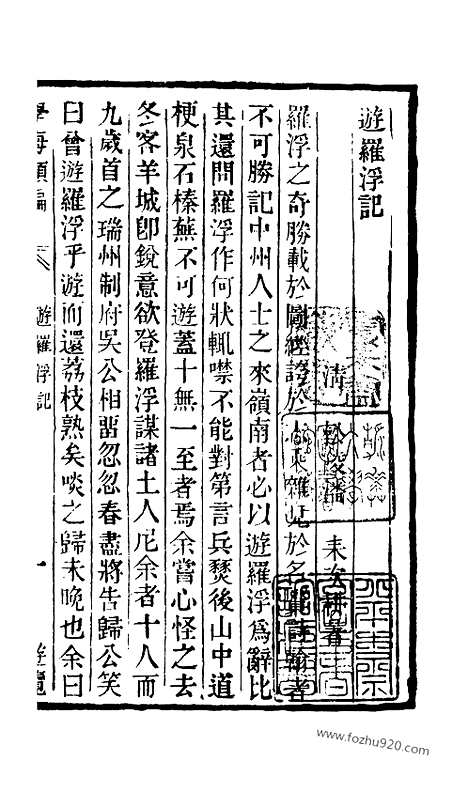 遊羅浮記
清 潘 耒次耕著
羅浮之奇勝載於圖經證於 雜見於名 詩翰者
不可勝記中州人士之來嶺南者必以遊羅浮爲辭比
其還問羅浮作何狀輒噤不能對第言兵燹後山中道
梗泉石榛蕪不可遊蓋十無一至者焉余嘗心怪之去
冬客羊城卽銳意欲登羅浮謀諸土人尼余者十人而
九歲首之瑞州制府吳公相畱忽忽春盡將告歸公笑
曰曾遊羅浮乎遊而還荔枝熟矣啖之歸未晚也余曰
學海類編 遊羅浮記 一 遊覽
www.fozhu920.com